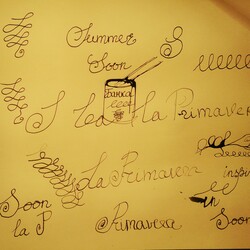 Summer
Soon
S
Банка
S la la Primavera
La Primavera
inspir
Soon
la P
@Primavera
Soon